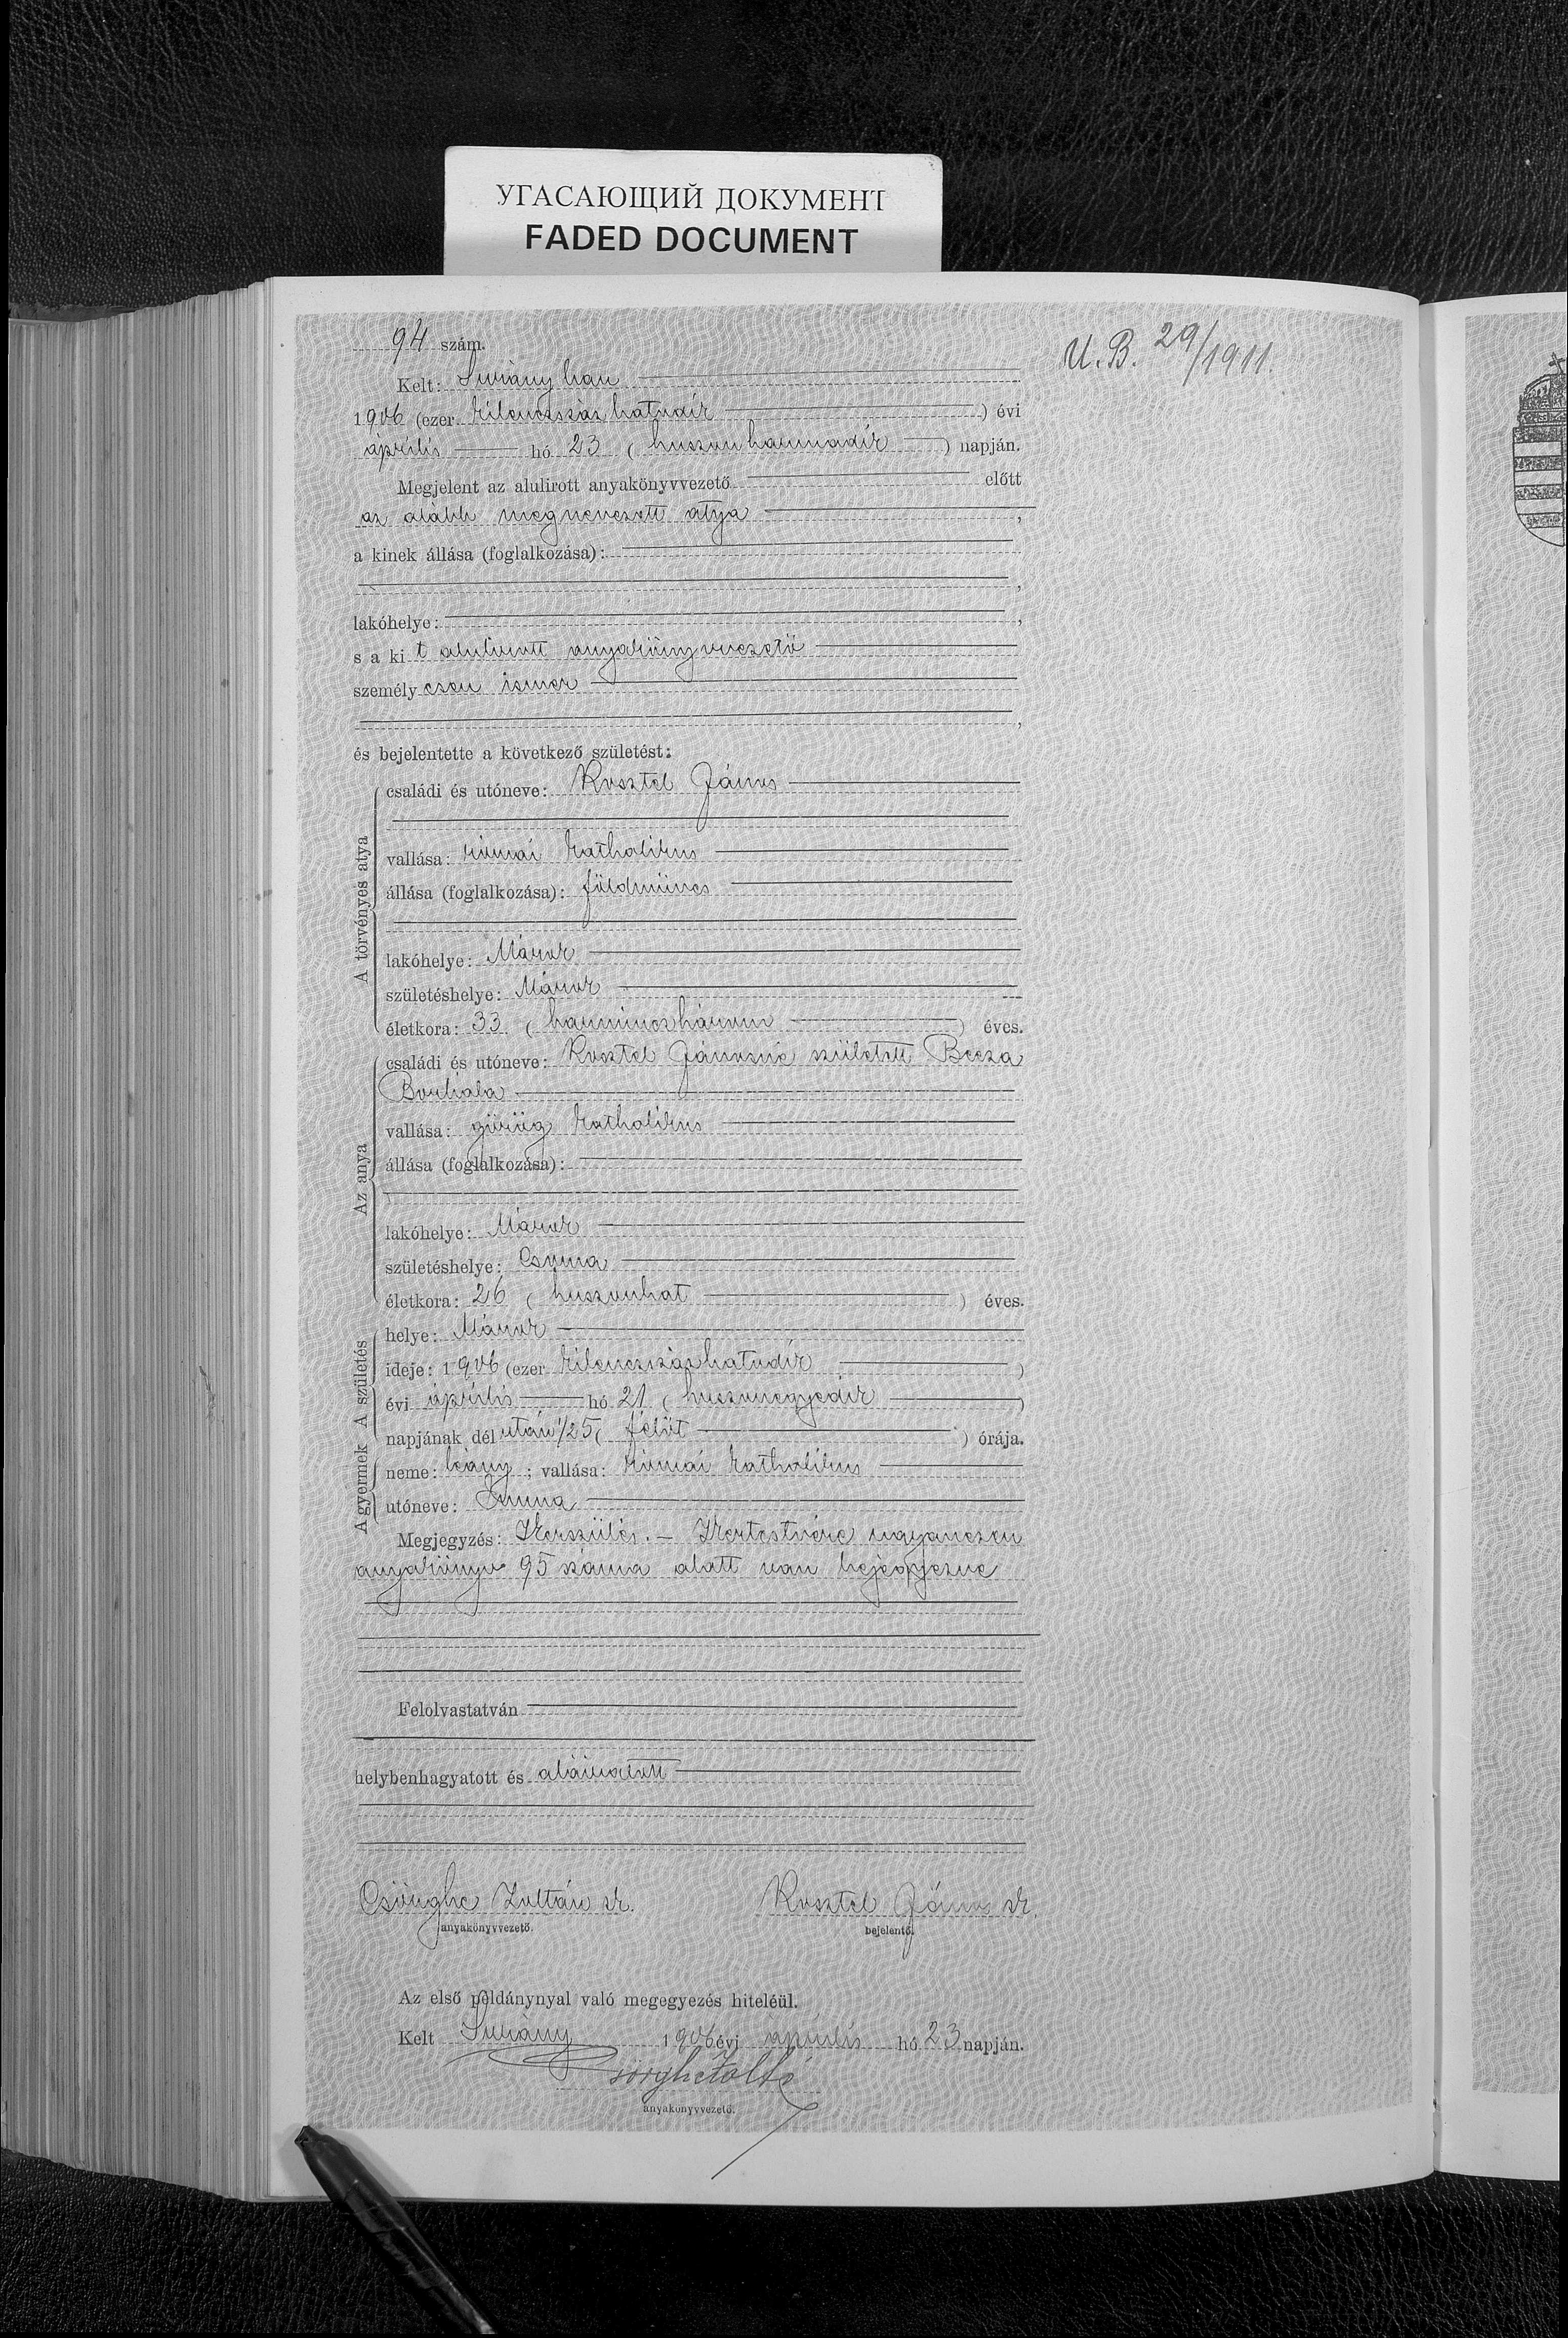 УГАСАЮЩИЙ ДОКУМЕНТ
FADED DOCUMENT
94 szám.
U. B. 29/1911.
Kelt:
1906 (ezer kilenczszázhatodik) évi
április hó 23 (huszonharmadik) napján.
Megjelent az alulirott anyakönyvvezető előtt
az alább megnevezett atya,
a kinek állása (foglalkozása):
lakóhelye:
s a kit alulirott anyakönyvvezető
személyesen ismer
és bejelentette a következő születést:
A törvényes atya
családi és utóneve: Kosztel János
vallása: római katholikus
állása (foglalkozása): földmüves
lakóhelye: Mámok
születéshelye: Mámok
életkora: 33 (harminczhárom) éves.
Az anya
családi és utóneve: Kosztel Jánosné született Becza
Borbála
vallása: görög katholikus
állása (foglalkozása):
lakóhelye:
születéshelye:
életkora: 26 (huszonhat) éves.
A születés
helye:
ideje: 1906 (ezer kilenczszázhatodik)
évi április hó 21 (huszonegyedik)
napjának délután 1/25 (félöt) órája.
A gyermek
neme: leány; vallása: római katholikus
utóneve:
Megjegyzés: Ikerszülés. – Ikertestvére ugyanezen
anyakönyv 95 száma alatt van bejegyezve
Felolvastatván
helybenhagyatott és aláiratott
Csörghe Zoltán sk. Kosztel János sk.
anyakönyvvezető. bejelentő.
Az első példánynyal való megegyezés hiteléül.
Kelt 1906 évi április hó 23 napján.
Csörghe Zoltán
anyakönyvvezető.